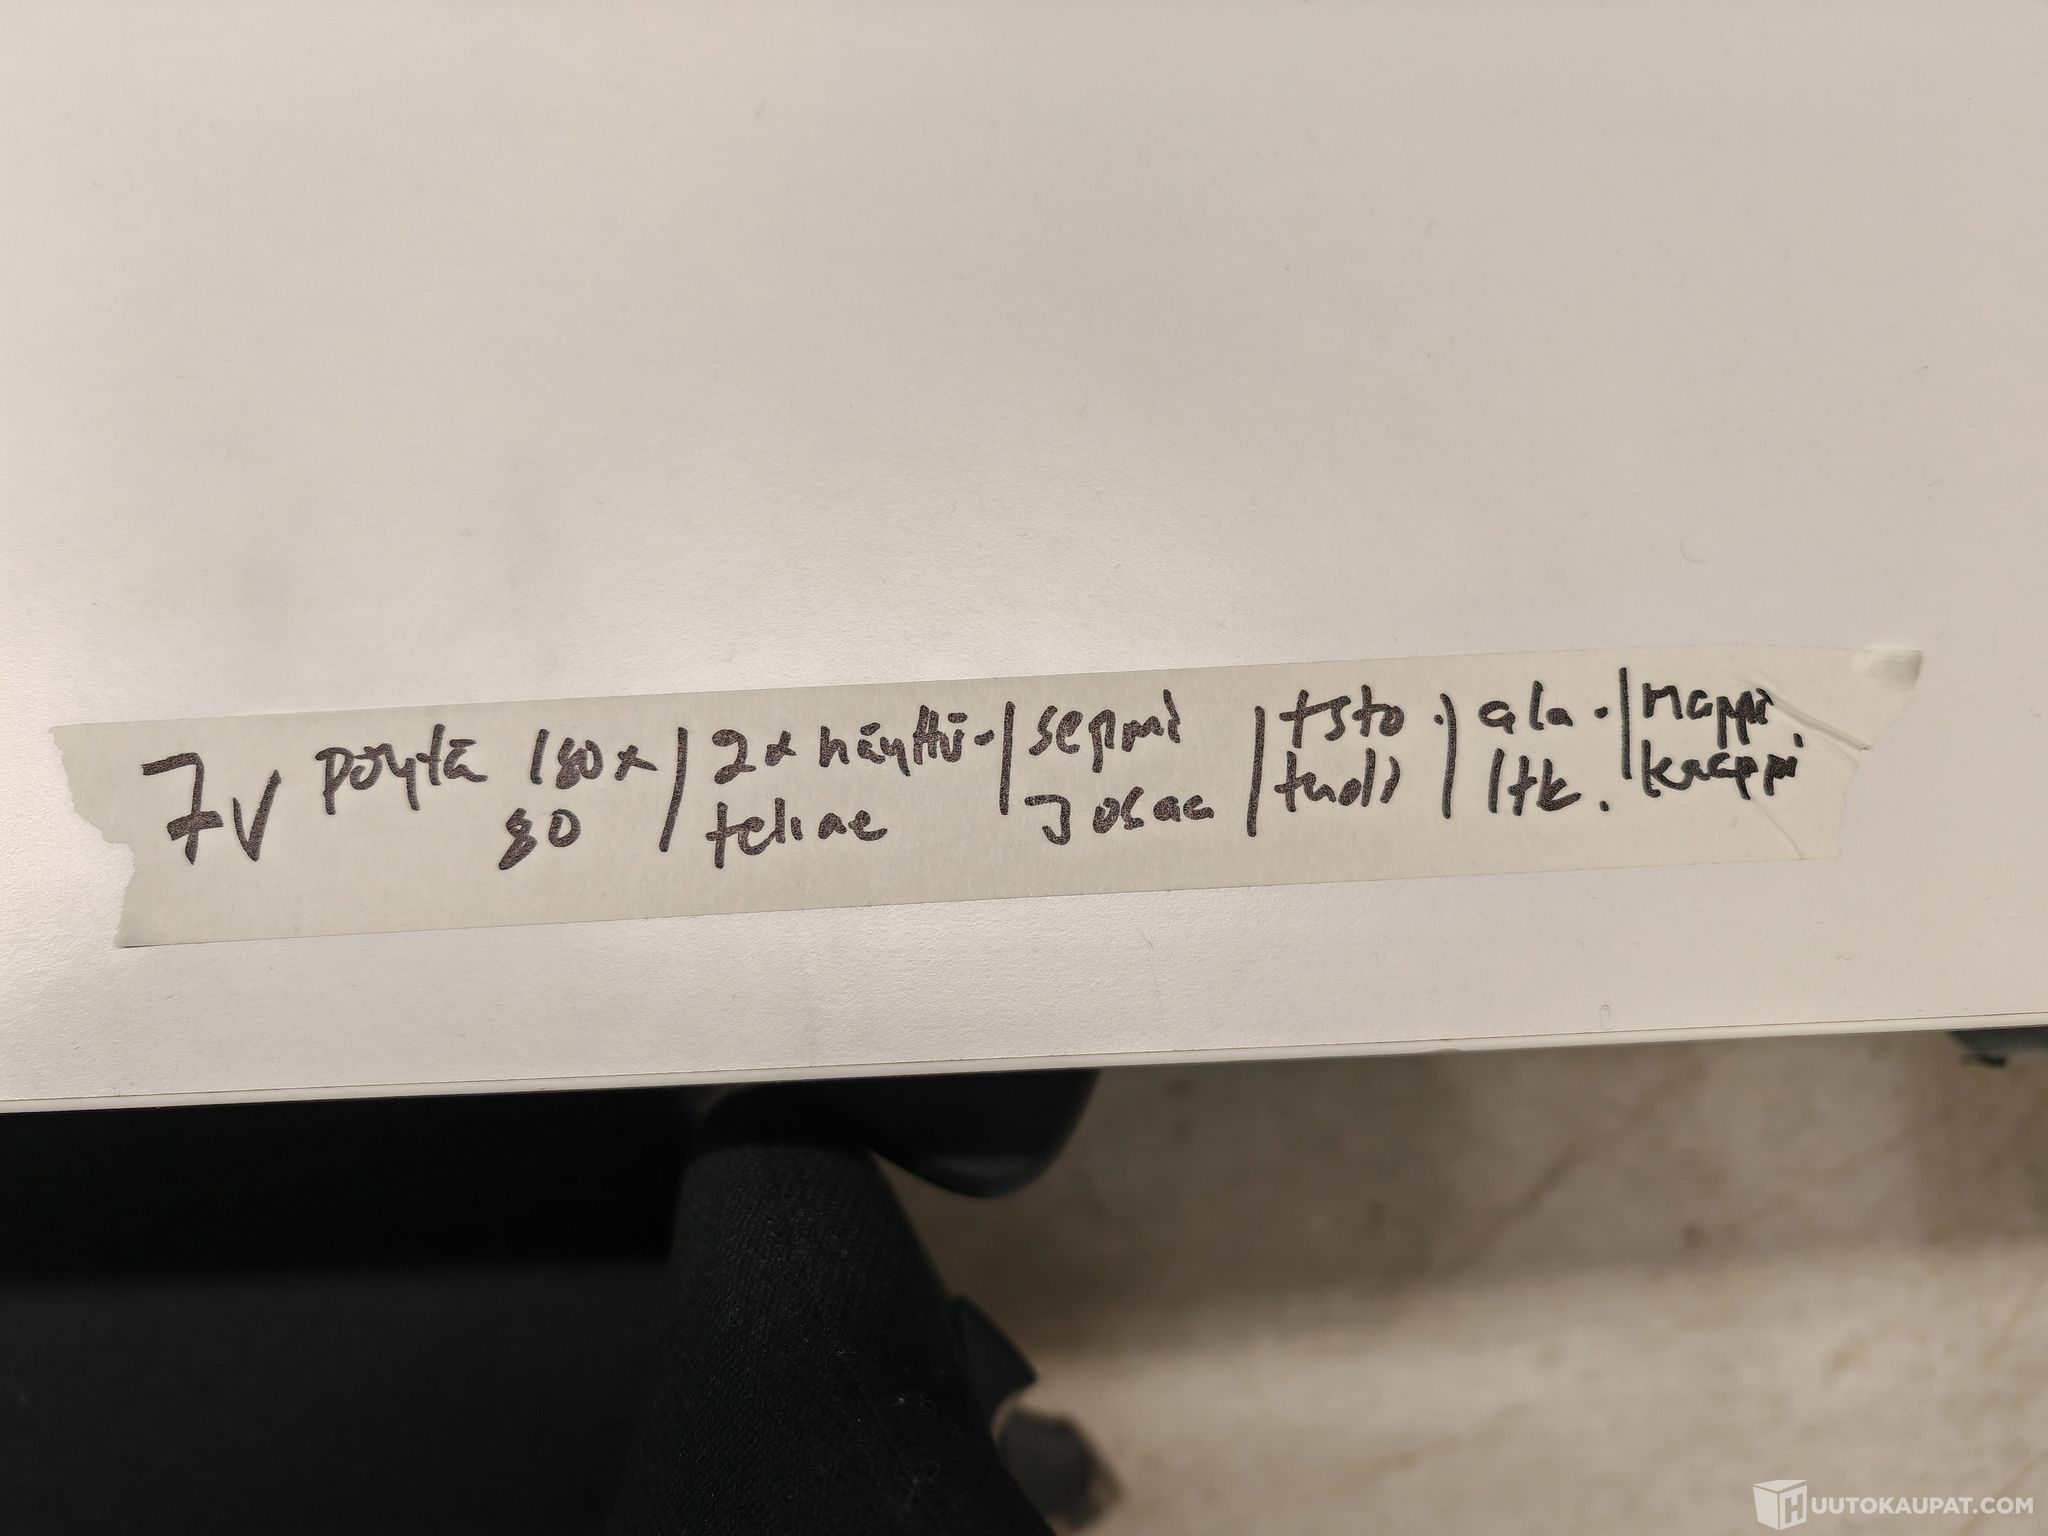 7V pöytä 180x / 2x näyttö- / sermi / tsto. / ala. / Mappi
80 teline Josac tuoli ltk. kaappi
HUUTOKAUPAT.COM